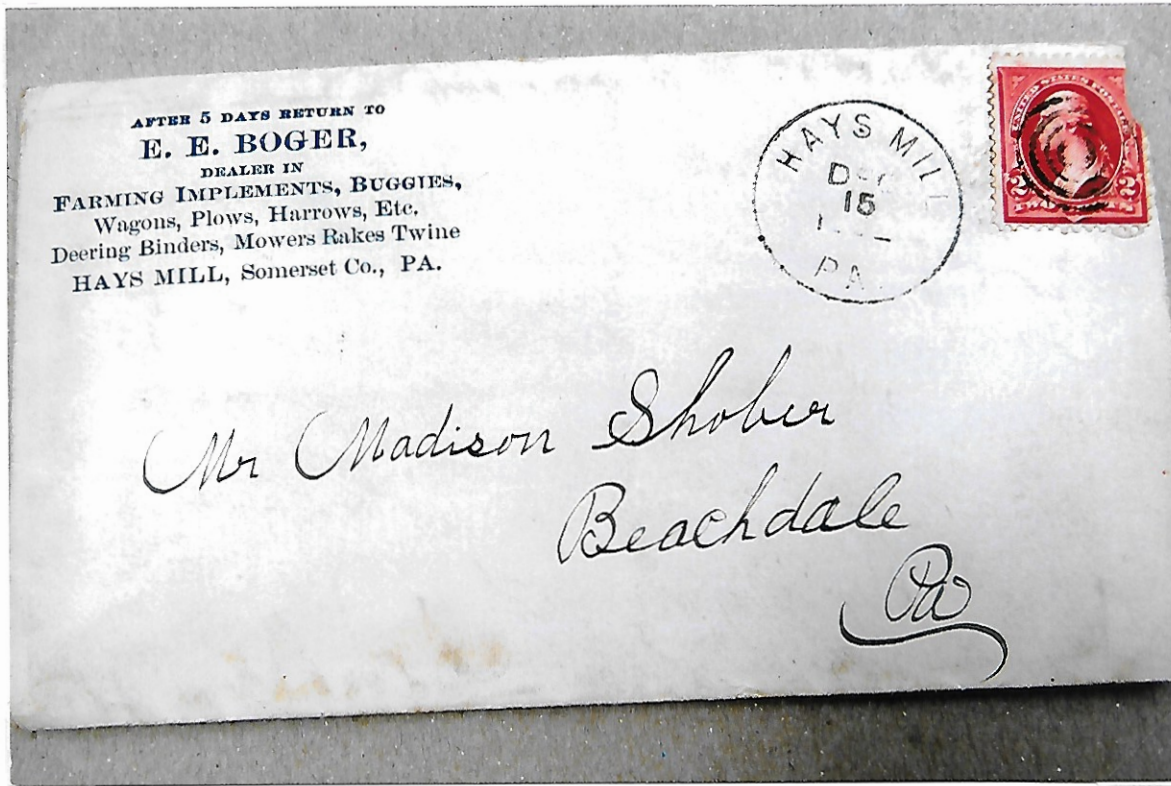 AFTER 5 DAYS RETURN TO
E. E. BOGER,
DEALER IN
FARMING IMPLEMENTS, BUGGIES,
Wagons, Plows, Harrows, Etc.
Deering Binders, Mowers Rakes Twine
HAYS MILL, Somerset Co., PA.
HAYS MILL
15
PA.
UNITED STATES POSTAGE
2 2
Mr Madison Shober
Beachdale
Pa